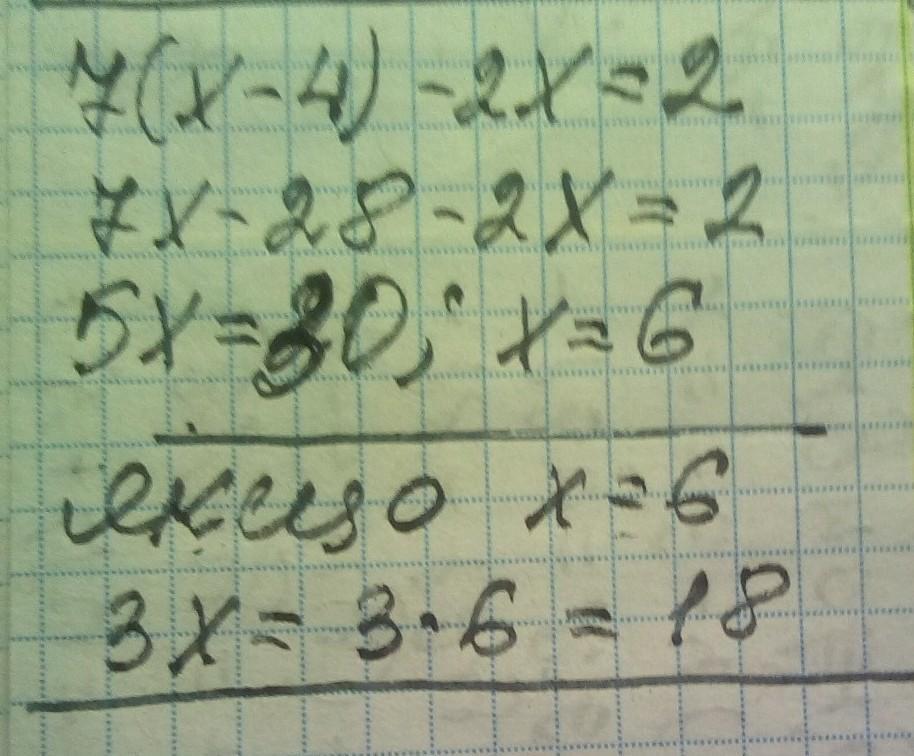 7(x-4)-2x=2
7x-28-2x=2
5x=30; x=6
якщо x=6
3x=3·6=18